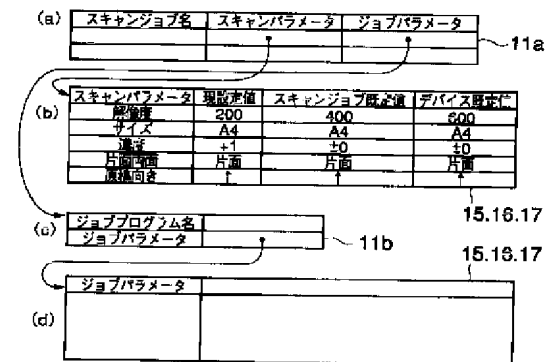 (a)
スキャンジョブ名 スキャンパラメータ ジョブパラメータ
11a
(b)
スキャンパラメータ 現設定値 スキャンジョブ既定値 デバイス既定値
解像度 200 400 600
サイズ A4 A4 A4
濃度 +1 ±0 ±0
片面両面 片面 片面 片面
原稿向き ↑ ↑ ↑
15.16.17
(c)
ジョブプログラム名
ジョブパラメータ
11b
15.16.17
(d)
ジョブパラメータ